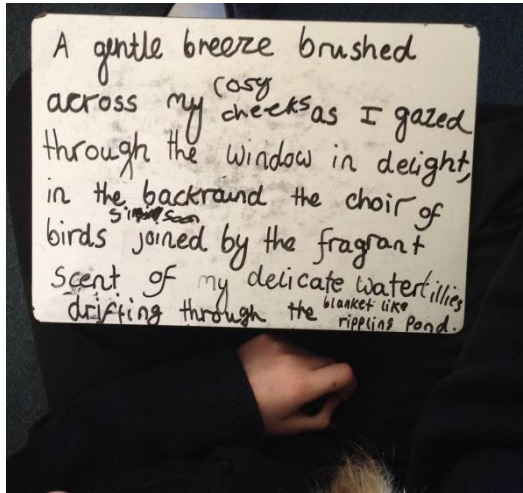 A gentle breeze brushed
across my cosy cheeks as I gazed
through the window in delight,
in the backraund the choir of
birds soon joined by the fragrant
scent of my delicate watertillies
drifting through the blanket like
rippling pond.